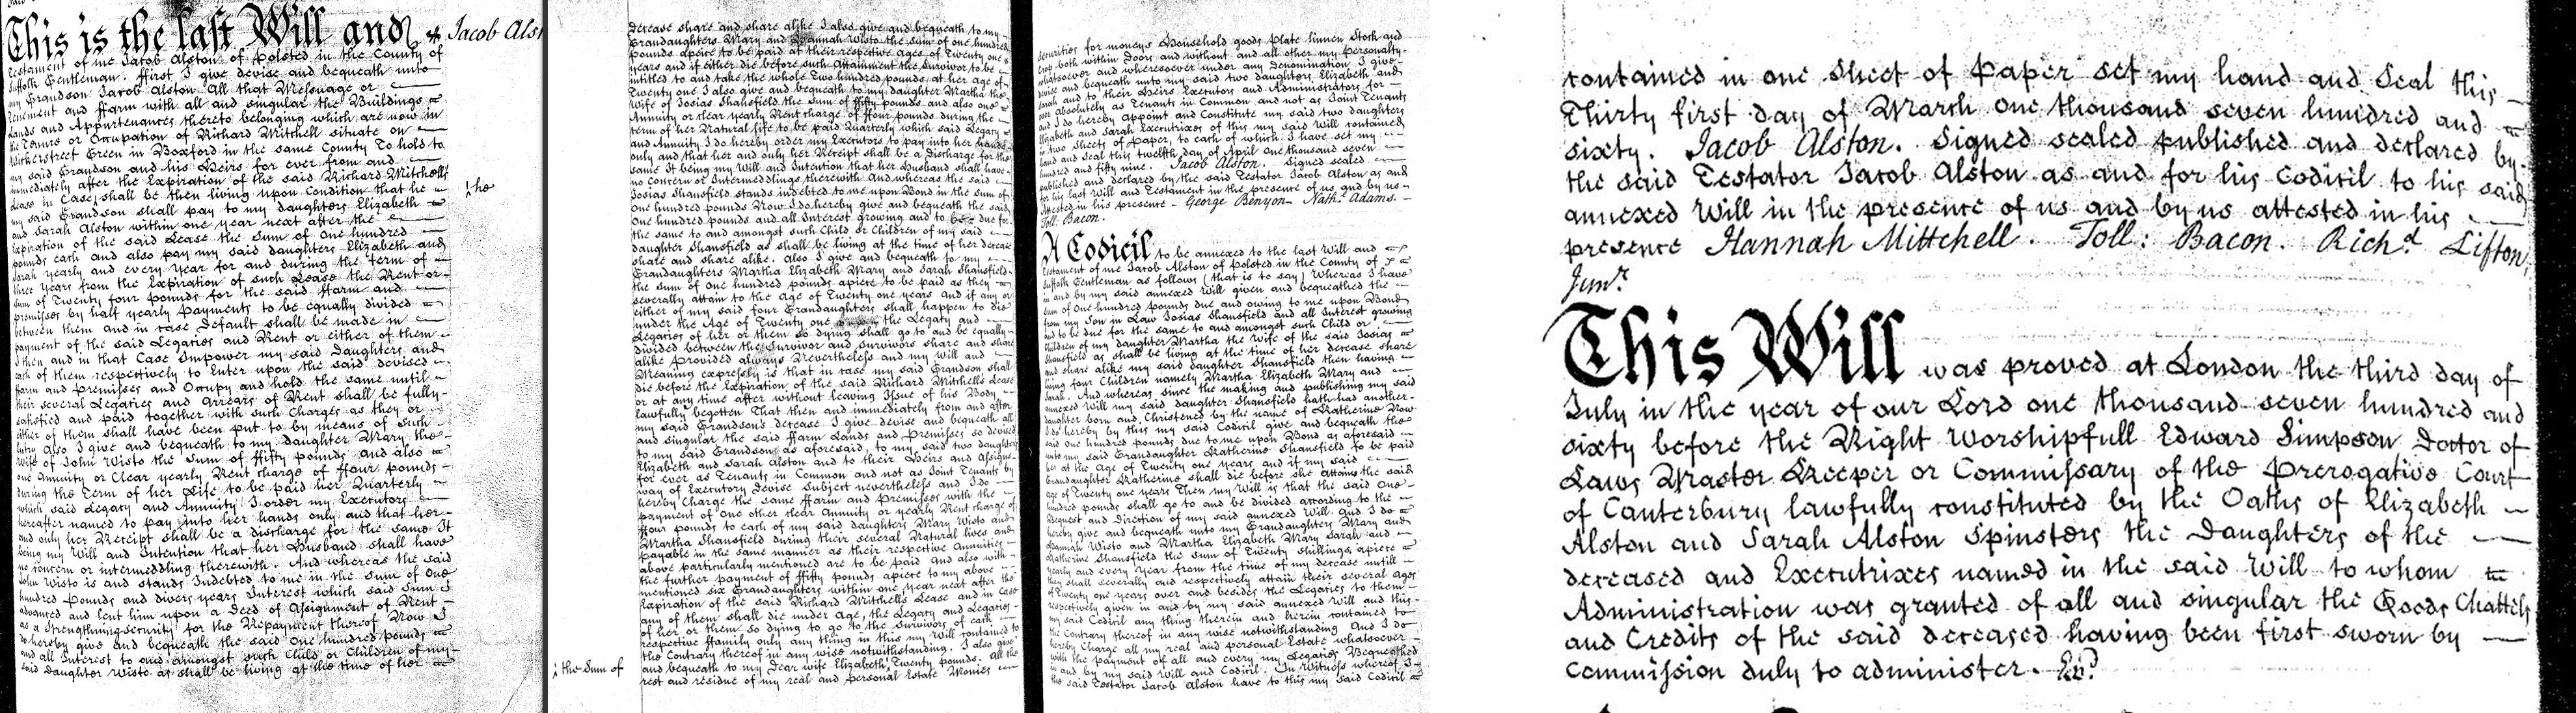 This is the last Will and & Jacob Alst
Testament of me Jacob Alston of Polsted in the County of
Suffolk Gentleman. ffirst I give devise and bequeath unto
my Grandson Jacob Alston All that Messuage or
Tenement and ffarm with all and singular the Buildings
Lands and Appurtenances thereto belonging which are now in
the Tenure or Occupation of Richard Mitchell situate on
Green in Boxford in the same County To hold to
my said Grandson and his Heirs for ever from and
immediately after the Expiration of the said Richard Mitchells
Lease in Case shall be then living upon Condition that he
he
my said Grandson shall pay to my daughters Elizabeth
and Sarah Alston within one year next after the
Expiration of the said Lease the Sum of One hundred
pounds each and also pay my said daughters Elizabeth and
Sarah yearly and every Year for and during the Term of
three Years from the Expiration of such Lease the Rent or
sum of Twenty four pounds for the said ffarm and
premises by half yearly Payments to be equally divided
between them and in case Default shall be made in
payment of the said Legacies and Rent or either of them
then and in that Case Impower my said Daughters and
each of them respectively to Enter upon the said devised
ffarm and Premisses and Occupy and hold the same until
their several Legacies and Arrears of Rent shall be fully
satisfied and paid together with such Charges as they or
either of them shall have been put to by means of such
Entry Also I give and bequeath to my daughter Mary the
Wife of John Wisto the Sum of ffifty pounds and also
one Annuity or Clear yearly Rent charge of ffour pounds
during the Term of her Life to be paid her Quarterly
which said Legacy and Annuity I order my Executors
hereafter named to pay into her hands only and that her
and only her Receipt shall be a discharge for the same It
being my Will and Intention that her Husband shall have
no concern or intermeddling therewith. And whereas the said
John Wisto is and stands Indebted to me in the Sum of One
hundred Pounds and divers years Interest which said Sum I
advanced and lent him upon a Deed of Assignment of Rent
as a Strengthning Security for the Repayment thereof Now I
do hereby give and bequeath the said One hundred pounds
and all Interest to and amongst such Child or Children of my
said Daughter Wisto as shall be living at the time of her
decease share and share alike I also give and bequeath to my
Grandaughters Mary and Hannah Wisto the Sum of one hundred
pounds apiece to be paid at their respective Ages of Twenty one
years and if either die before such Attainment the Survivor to be
intitled to and take the whole Two hundred pounds at her age of
Twenty one I also give and bequeath to my daughter Martha the
Wife of Josias Shansfield the Sum of ffifty pounds and also one
Annuity or clear yearly Rent charge of ffour pounds during the
term of her Natural life to be paid Quarterly which said Legacy
and Annuity I do hereby order my Executors to pay into her hands
only and that her and only her Receipt shall be a Discharge for the
same It being my Will and Intention that her Husband shall have
no Concern or Intermeddlings therewith And whereas the said
Josias Shansfield stands indebted to me upon Bond in the Sum of
One hundred pounds Now I do hereby give and bequeath the said
One hundred pounds and all Interest growing and to be due for
the same to and amongst such Child or Children of my said
daughter Shansfield as shall be living at the time of her decease
share and share alike. Also I give and bequeath to my
Grandaughters Martha Elizabeth Mary and Sarah Shansfield
the sum of one hundred pounds apiece to be paid as they
severally attain to the Age of Twenty one years and if any or
either of my said four Grandaughters shall happen to die
under the Age of Twenty one the Legacy and
Legacies of her or them so dying shall go to and be equally
divided between the Survivor and Survivors share and share
alike Provided always Nevertheless and my Will and
Meaning expressly is that in case my said Grandson shall
die before the Expiration of the said Richard Mitchells Lease
or at any time after without leaving Issue of his Body
lawfully begotten That then and immediately from and after
my said Grandson's decease I give devise and bequeath all
and singular the said ffarm Lands and Premisses so devised
to my said Grandson as aforesaid, to my said two daughters
Elizabeth and Sarah Alston and to their Heirs and Assigns
for ever as Tenants in Common and not as Joint Tenants by
way of Executory Devise subject nevertheless and I do
hereby Charge the same ffarm and Premisses with the
payment of One other clear Annuity or yearly Rent charge of
ffour pounds to each of my said daughters Mary Wisto and
Martha Shansfield during their several Natural lives and
payable in the same manner as their respective Annuities
above particularly mentioned are to be paid And also with
the further payment of ffifty pounds apiece to my above
mentioned six Grandaughters within one year next after the
Expiration of the said Richard Mitchells Lease and in case
any of them shall die under Age, the Legacy and Legacies
of her or them so dying to go to the Survivors of each
respective ffamily only any thing in this my Will contained to
the Contrary thereof in any wise notwithstanding. I also give
and bequeath to my Dear wife Elizabeth Twenty pounds. All the
the Sum of
rest and residue of my real and personal Estate Monies
Securities for moneys Household goods Plate linnen Stock and
Crop both within Doors and without and all other my Personalty
whatsoever and wheresoever under any Denomination I give
devise and bequeath unto my said two daughters Elizabeth and
Sarah and to their Heirs Executors and Administrators for
ever absolutely as Tenants in Common and not as Joint Tenants
and I do hereby Appoint and Constitute my said two daughters
Elizabeth and Sarah Executrixes of this my said Will contained
in two Sheets of Paper, to each of which I have set my
hand and Seal this twelfth day of April One thousand seven
hundred and fifty nine. Jacob Alston. Signed sealed
published and declared by the said Testator Jacob Alston as and
for his last Will and Testament in the presence of us and by us
attested in his presence - George Benyon Nath: Adams.
Toll: Bacon.
A Codicil to be annexed to the last Will and
Testament of me Jacob Alston of Polsted in the County of
Suffolk Gentleman as follows (that is to say) Whereas I have
in and by my said annexed Will given and bequeathed the
Sum of One hundred pounds due and owing to me upon Bond
from my Son in Law Josias Shansfield and all Interest growing
and to be due for the same to and amongst such Child or
Children of my daughter Martha the Wife of the said Josias
Shansfield as shall be living at the time of her decease share
and share alike my said daughter Shansfield then having
living four Children namely Martha Elizabeth Mary and
Sarah. And whereas since the making and publishing my said
annexed Will my said daughter Shansfield hath had another
daughter born and Christened by the name of Katherine Now
I do hereby by this my said Codicil give and bequeath the
said one hundred pounds due to me upon Bond as aforesaid
unto my said Grandaughter Katherine Shansfield to be paid
her at the Age of Twenty one years and if my said
Grandaughter Katherine shall die before she attains the said
age of Twenty one years Then my Will is that the said One
hundred pounds shall go to and be divided according to the
Bequest and direction of my said annexed Will And I do
hereby give and bequeath unto my Grandaughters Mary and
Hannah Wisto and Martha Elizabeth Mary Sarah and
Katherine Shansfield the Sum of Twenty Shillings apiece
yearly and every Year from the time of my decease untill
they shall severally and respectively attain their several ages
of Twenty one years over and besides the Legacies to them
respectively given in and by my said annexed Will and this
my said Codicil any thing therein and herein contained to
the Contrary thereof in any wise notwithstanding And I do
hereby Charge all my real and personal Estate whatsoever
with the payment of all and every my Legacies Bequeathed
in and by my said Will and Codicil. In Witness whereof I
the said Testator Jacob Alston have to this my said Codicil
contained in one Sheet of Paper set my hand and Seal this
Thirty first day of March One thousand seven hundred and
sixty. Jacob Alston. Signed sealed published and declared by
the said Testator Jacob Alston as and for his Codicil to his said
annexed Will in the presence of us and by us attested in his
presence Hannah Mittchell. Toll: Bacon. Richd. Lifton,
Junr.
This Will was proved at London the third day of
July in the year of our Lord one thousand seven hundred and
sixty before the Right Worshipfull Edward Simpson Doctor of
Laws Master Keeper or Commissary of the Prerogative Court
of Canterbury lawfully constituted by the Oaths of Elizabeth
Alston and Sarah Alston Spinsters the Daughters of the
deceased and Executrixes named in the said Will to whom
Administration was granted of all and singular the Goods Chattels
and Credits of the said deceased having been first sworn by
Commission duly to administer. Exd.